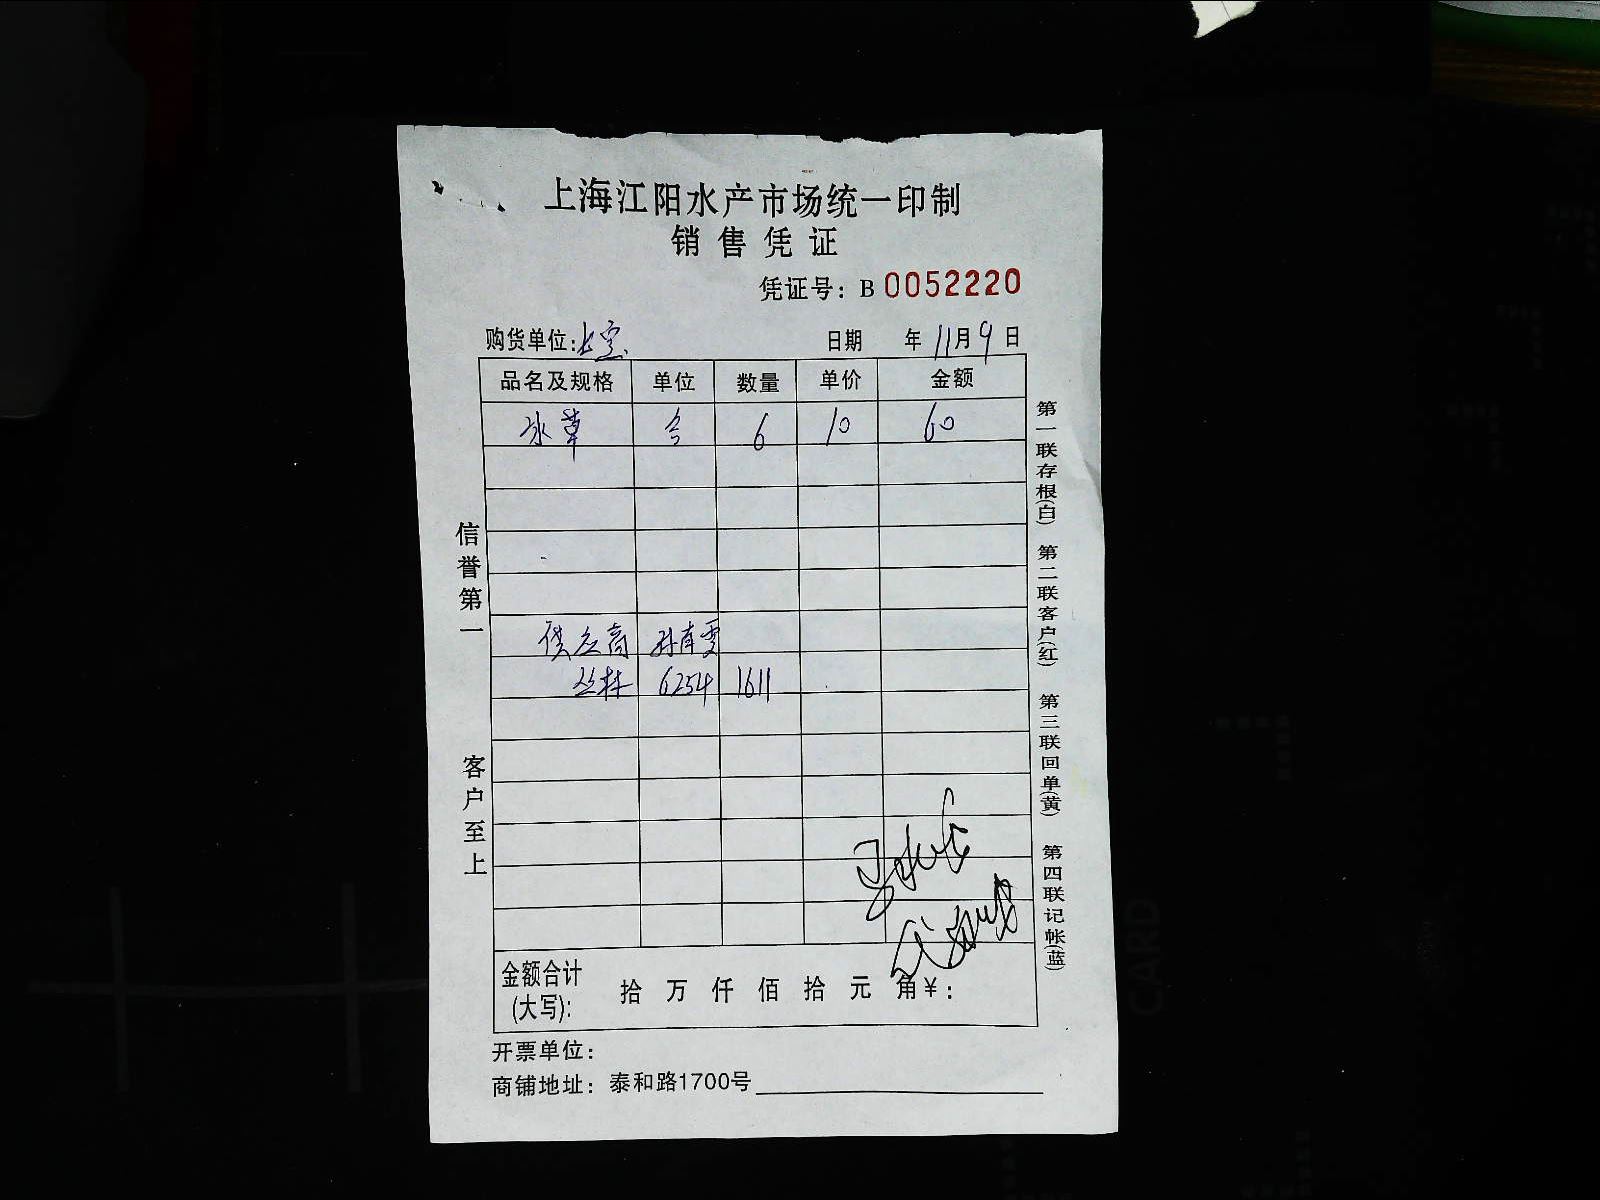 上海江阳水产市场统一印制
销售凭证
凭证号：B 0052220
购货单位： 日期 年 11月 9日
品名及规格 单位 数量 单价 金额
冰草 6 10 60
供应商 孙南雯
丛林 6254 1611
金额合计(大写)： 拾 万 仟 佰 拾 元 角￥：
开票单位：
商铺地址：泰和路1700号
信誉第一
客户至上
第一联存根(白)
第二联客户(红)
第三联回单(黄)
第四联记帐(蓝)
CARD